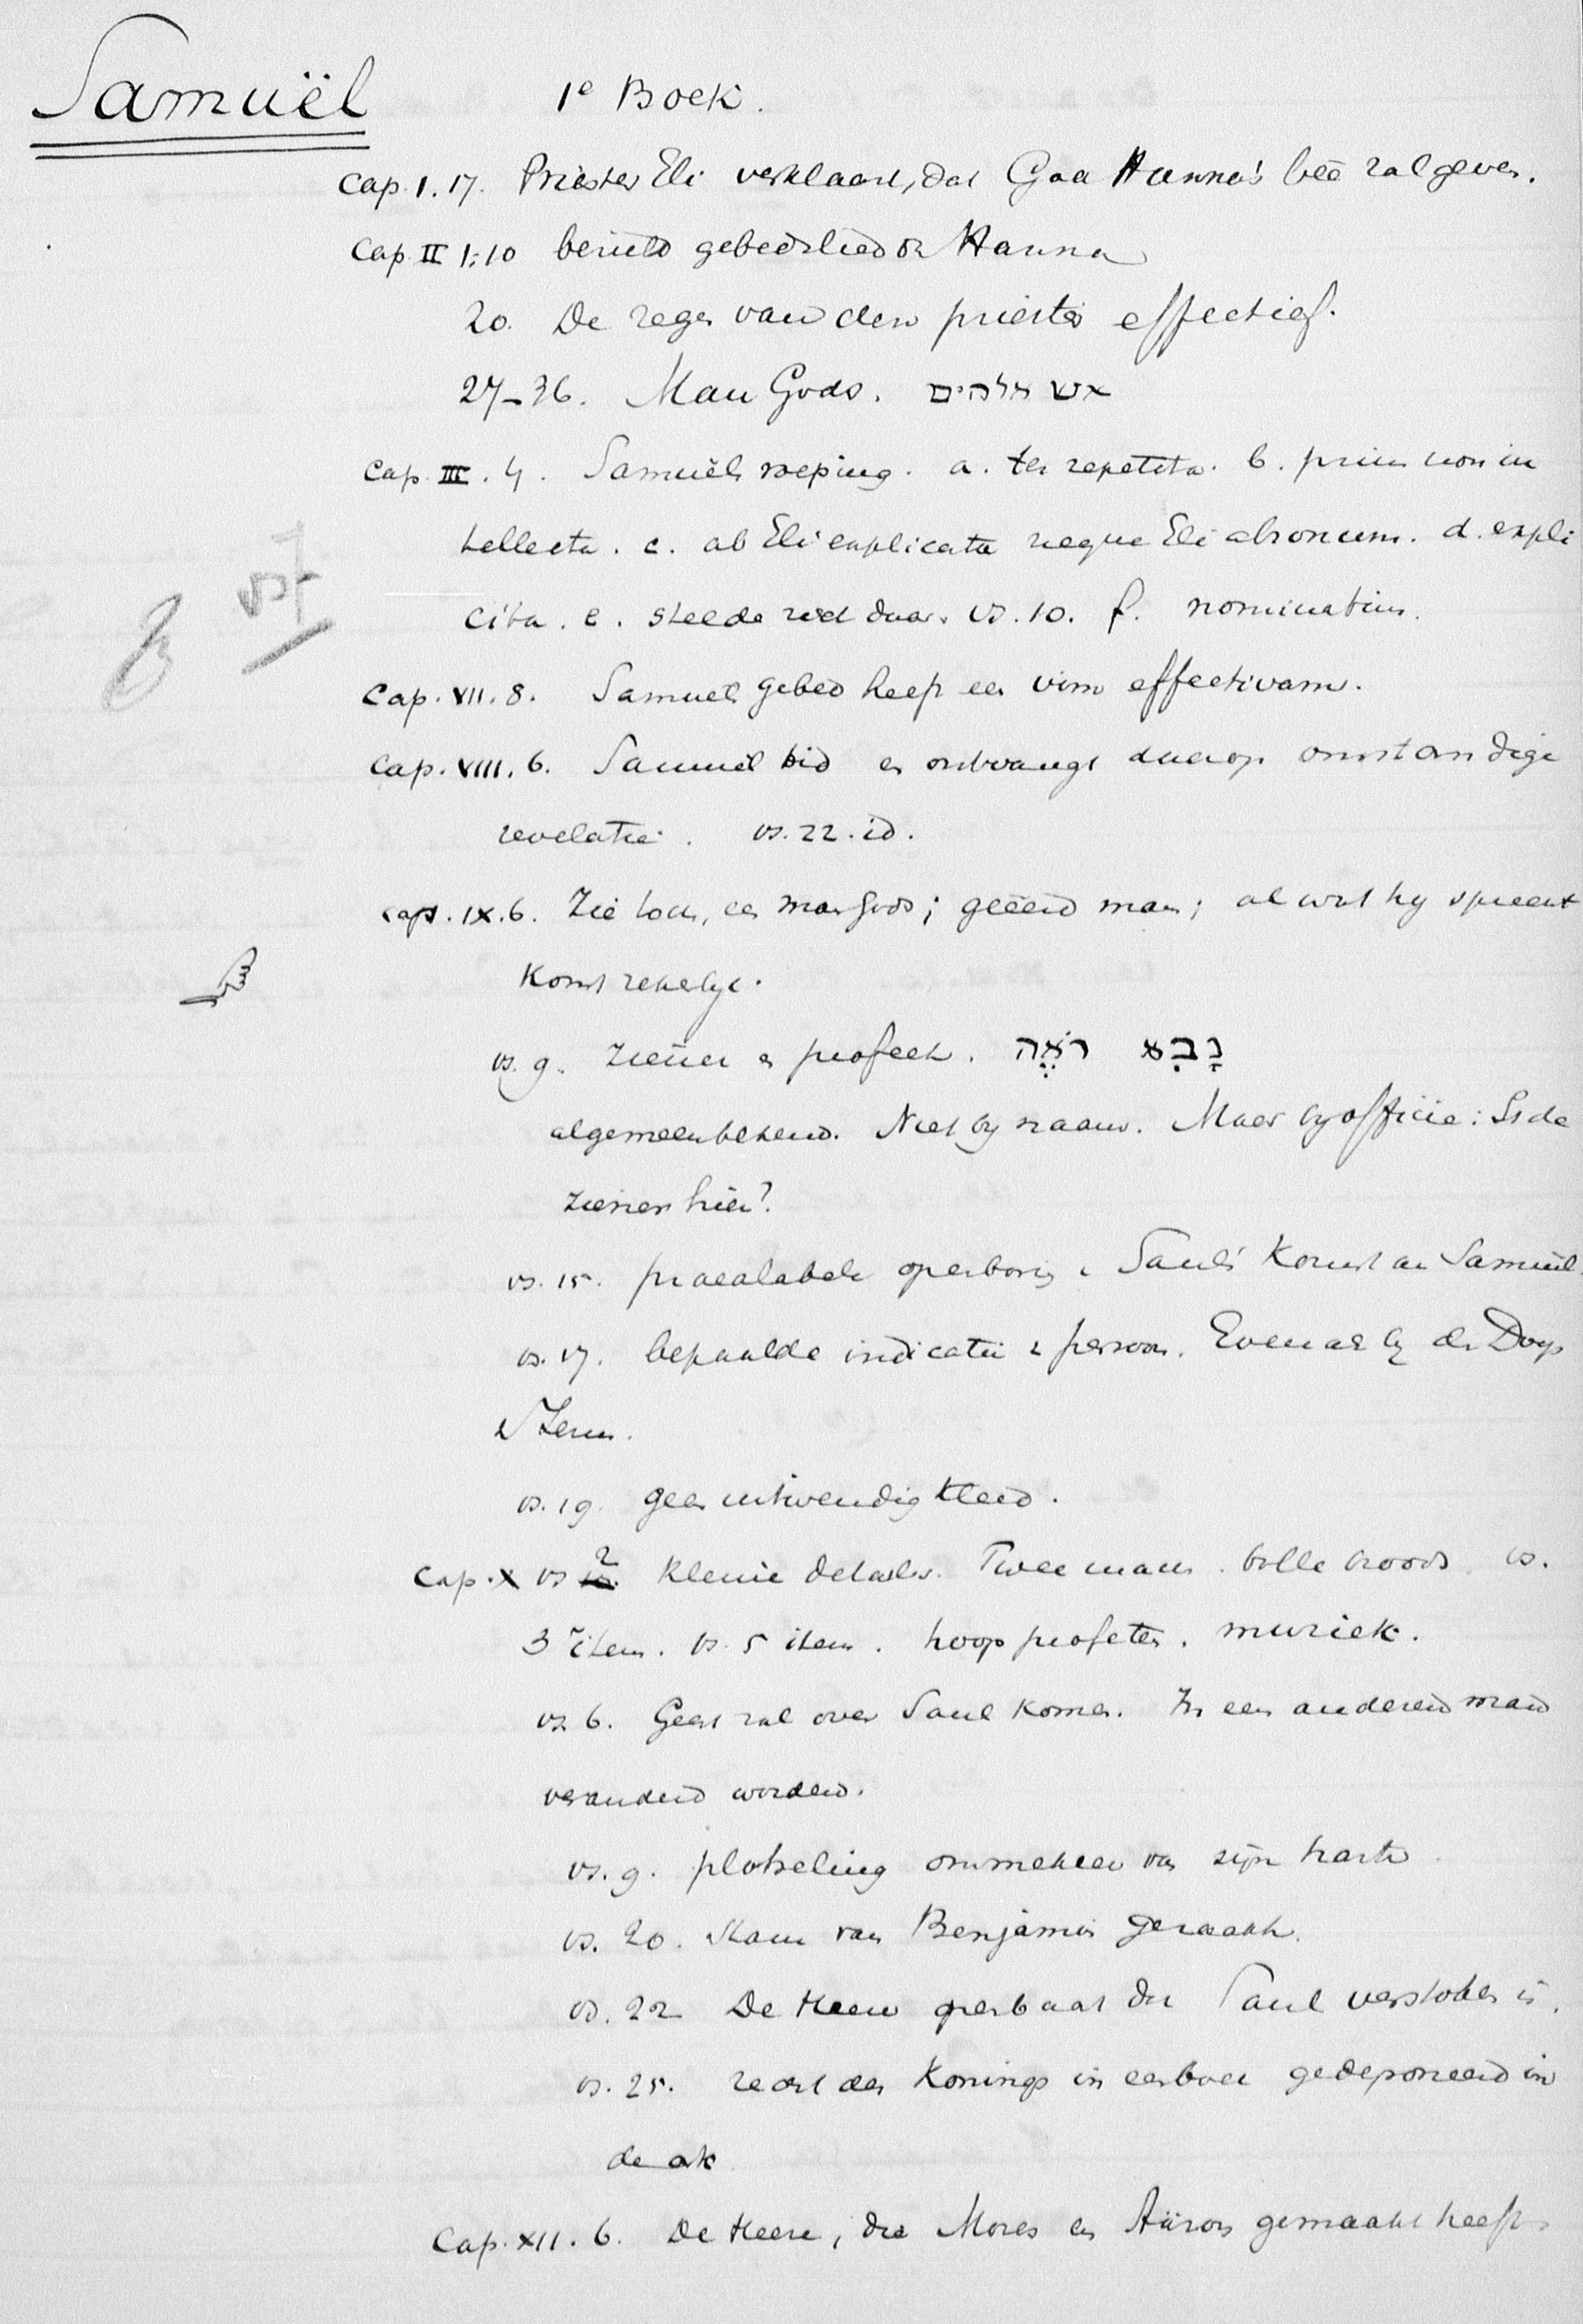 Samuël 1e Boek.
Cap. I. 17. Priester Eli verklaart, dat God Hanna's beê zal geven.
Cap II 1:10 gebedslied van Hanna
20. De zegen van den priester effectief.
27-36. Man Gods. איש אלהים
Cap. III. 4. Samuëls roeping. a. ter repetita. b. prius non in
tellecta. c. ab Eli explicata neque Eli absonum. d. expli
cita. e. stelde zich daar. vs. 10. f. nominatim.
vs 7
Cap. VII. 8. Samuels gebed heeft een vim effectivam.
Cap. VIII. 6. Samuel bid en ontvangt daarop omstandige
revelatie. vs. 22. id.
Cap. IX. 6. Zie toch, een man Gods; geëerd man; al wat hij spreekt
komt zekerlijk.
vs. 9. ziener en profeet. רֹאֶה נָבִא
algemeen bekend. Niet bij naam. Maar bij officie: Is de
ziener hier?
vs. 15. praealabele openbaring v. Sauls komst aan Samuël.
vs. 17. bepaalde indicatie v persoon. Evenals bij den Doop
v Jezus.
vs. 19. geen uitwendig kleed.
Cap. X vs 2 kleine details. Twee mann. bolle broods. vs.
3 item. vs. 5 item. hoop profeten. muziek.
vs. 6. Geest zal over Saul komen. In een anderen man
veranderd worden.
vs. 9. plotseling ommekeer van zijn hart
vs. 20. Stam van Benjamin geraakt.
vs. 22 De Heere openbaart dat Saul verstoken is.
vs. 25. recht des Konings in een boek gedeponeerd in
de ark
Cap. XII. 6. De Heere, die Mozes en Aäron gemaakt heeft